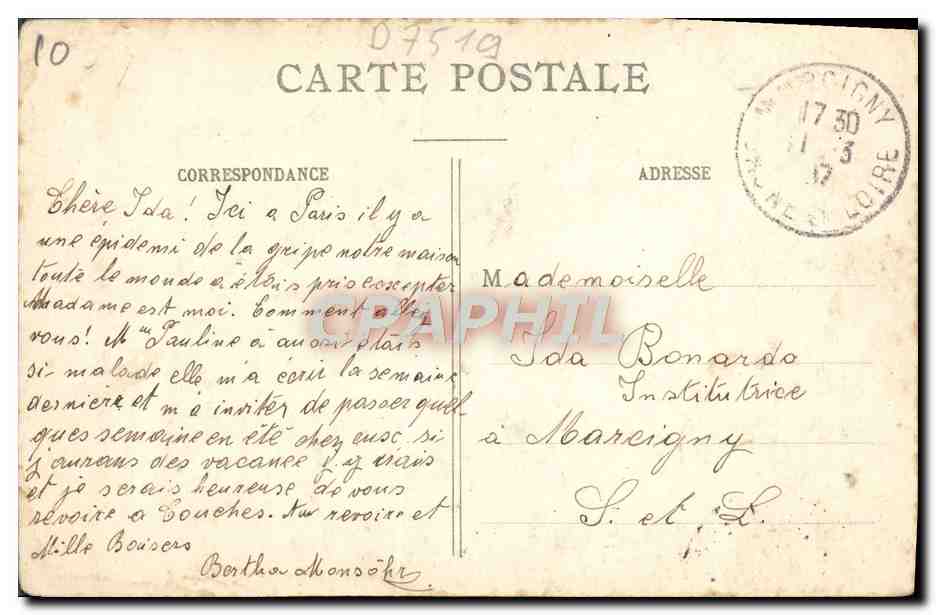 10
D7519
CARTE POSTALE
MARCIGNY
17 30
11 3
17
SAONE ET LOIRE
CORRESPONDANCE
ADRESSE
Chère Ida! Ici a Paris il y a
une épidemi de la gripe notre maison
touté le monde a étois pris excepter
Madame est moi. Comment allez
vous! Mme Pauline à aussi étais
si malade elle m'a écrit la semaine
derniere et m'a inviter de passer quel-
ques semaine en été chez eusc si
j'aurans des vacance j'y irais
et je serais heureuse de vous
revoire a Couches. Au revoire et
Mille Boisers
Bertha Monsöhr
Mademoiselle
Ida Bonardo
Institutrice
à Marcigny
S. et L.
CPAPHIL